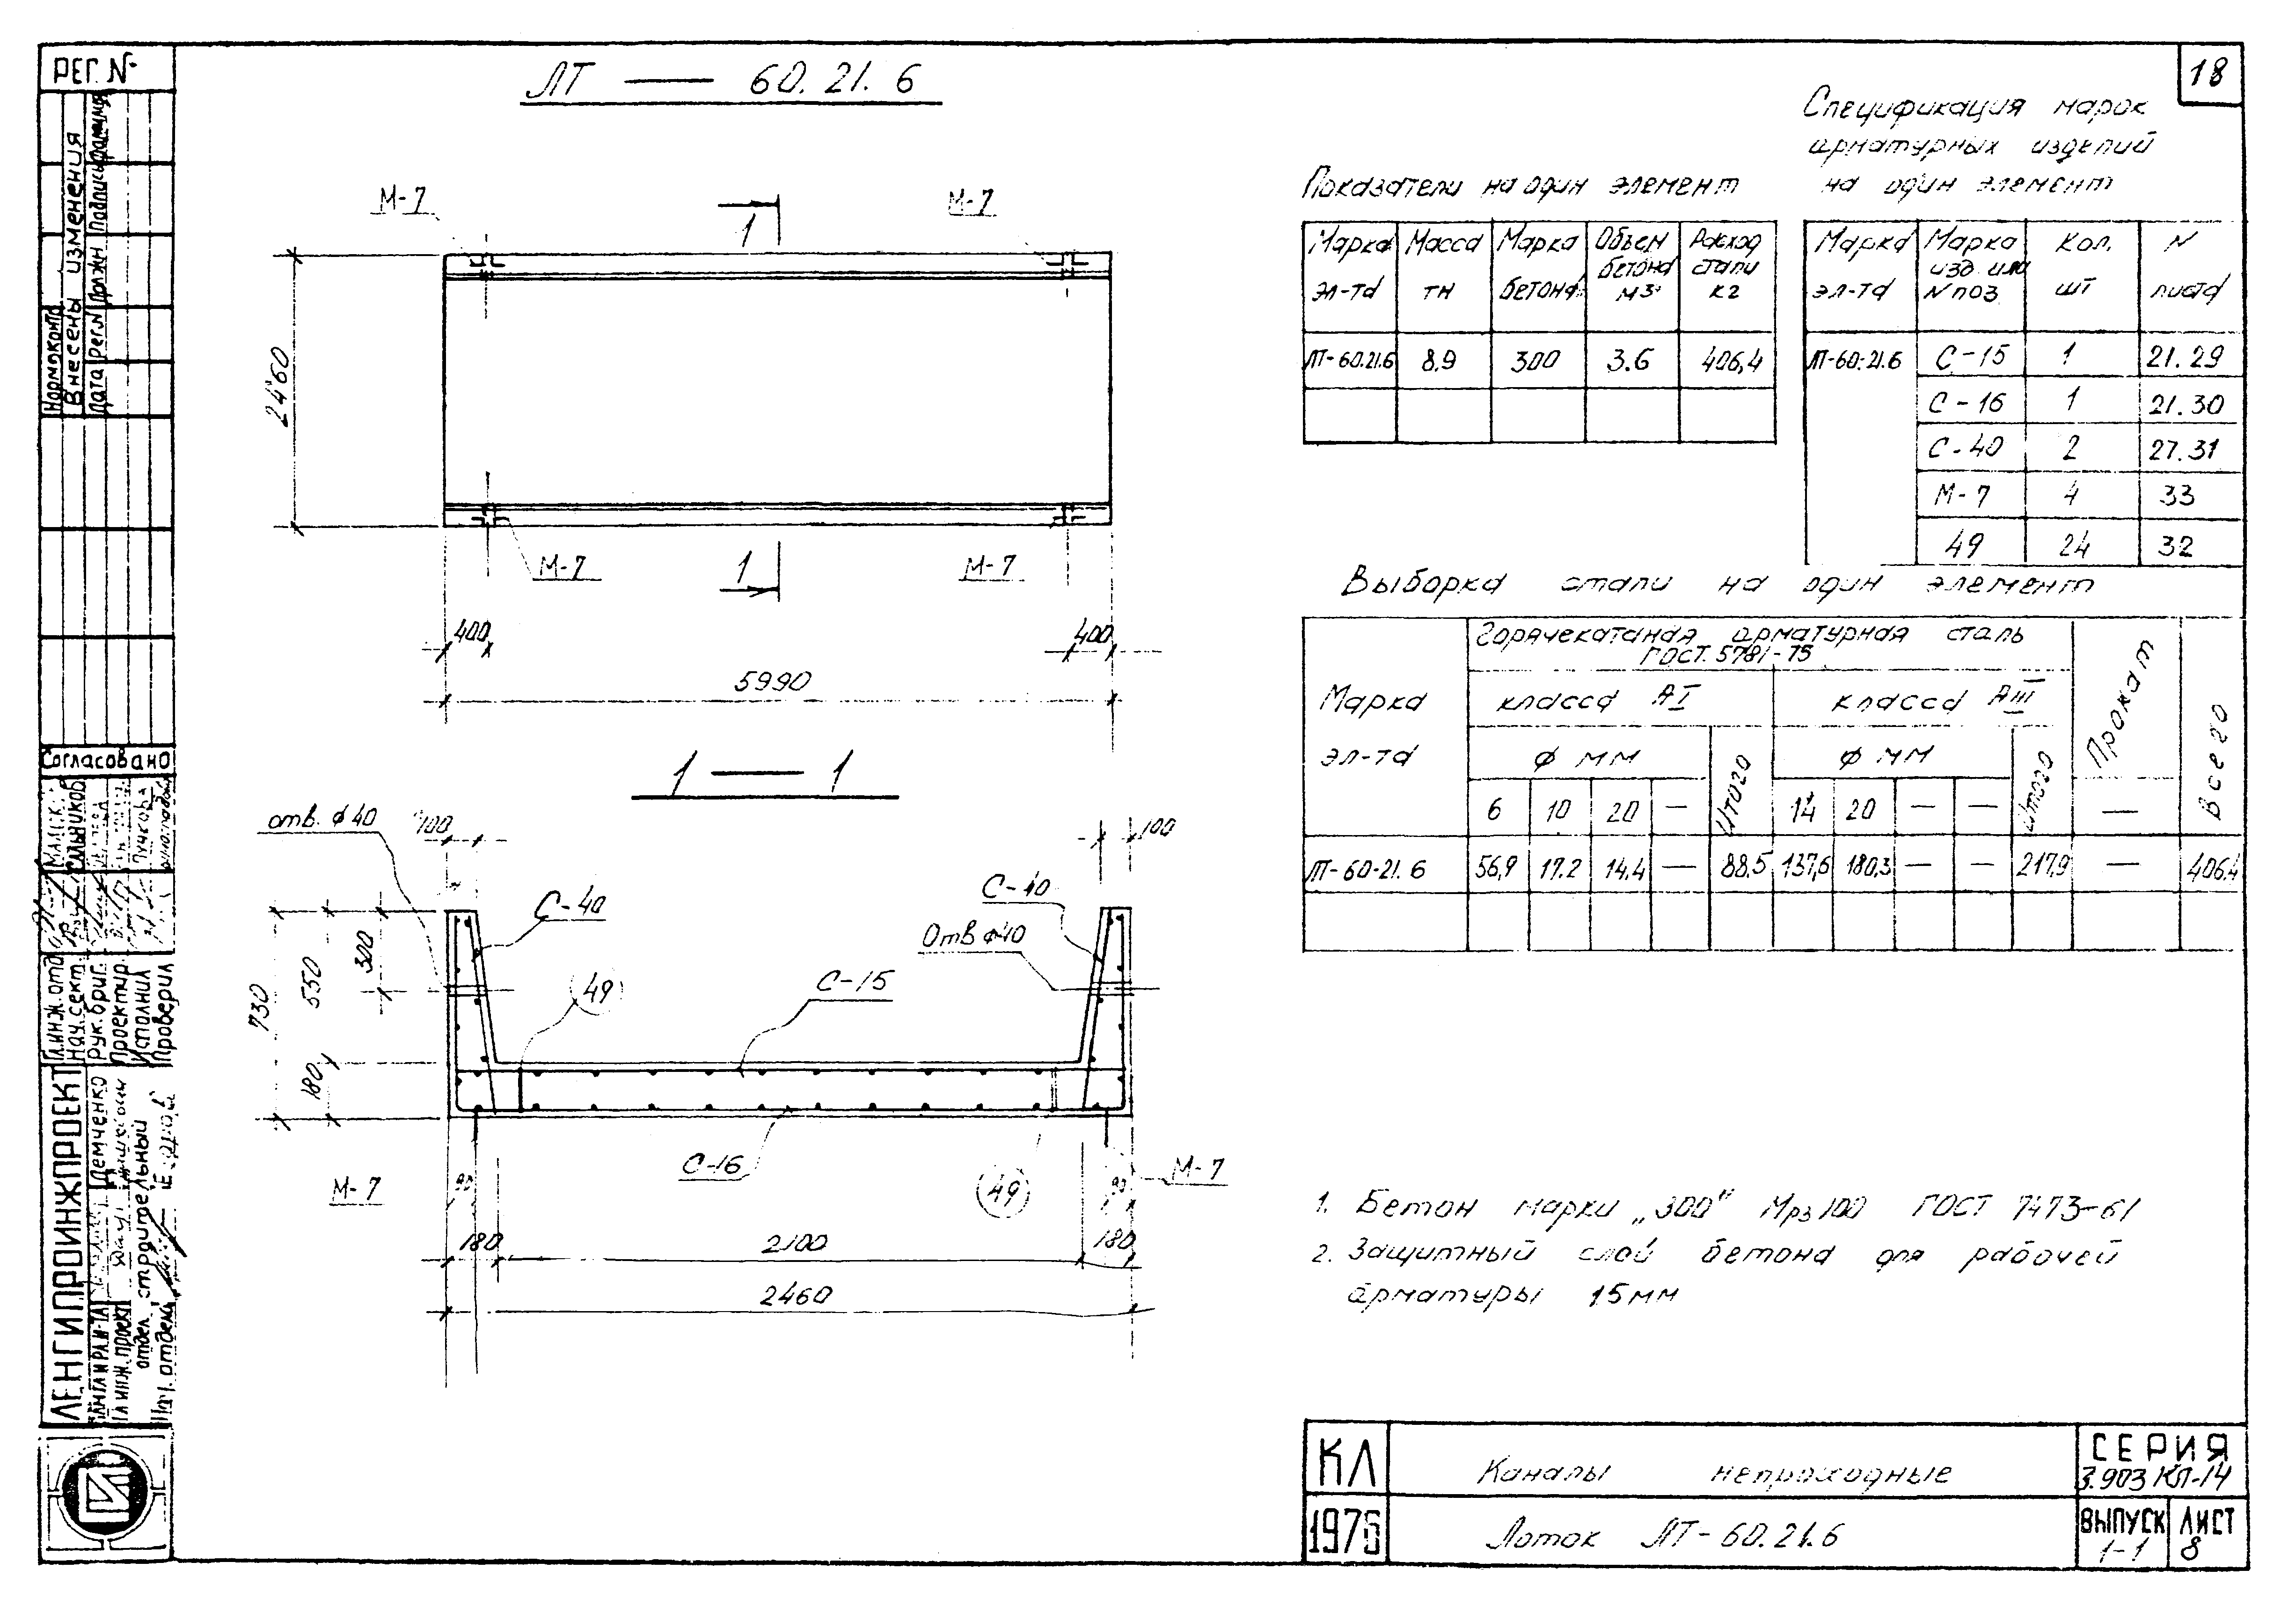 РЕГ. №
18
ЛТ — 60.21.6
М-7
М-7
1
2460
М-7
М-7
1
400
400
5990
1 — 1
отв. ф40
100
100
С-40
С-40
Отв ф40
49
С-15
730
550
300
180
С-16
49
М-7
М-7
90
90
180
2100
180
2460
Показатели на один элемент
Марка эл-та
Масса тн
Марка бетона
Объем бетона м3
Расход стали кг
ЛТ-60.21.6 8.9 300 3.6 406,4
Спецификация марок
арматурных изделий
на один элемент
Марка эл-та
Марка изд. или N поз.
Кол. шт
N листа
ЛТ-60.21.6 С-15 1 21.29
С-16 1 21.30
С-40 2 27.31
М-7 4 33
49 24 32
Выборка стали на один элемент
Марка эл-та
Горячекатаная арматурная сталь
ГОСТ. 5781-75
класса АI
класса АIII
Прокат
Всего
ф мм
Итого
ф мм
Итого
6 10 20 — 14 20 — — —
ЛТ-60-21.6 56,9 17.2 14.4 — 88.5 137,6 180,3 — — 217,9 — 406.4
1. Бетон марки „300" Мрз100 ГОСТ 7473-61
2. Защитный слой бетона для рабочей
арматуры 15мм
КЛ
1976
Каналы непроходные
Лоток ЛТ-60.21.6
СЕРИЯ
3.903 КЛ-14
ВЫПУСК
1-1
ЛИСТ
8
Нормоконтр.
Внесены изменения
Дата Рег.N Должн Подпись Фамилия
Согласовано
Гл.инж.отд
Нач.сект.
Рук.бриг.
Проектир.
Исполнил
Проверил
Сальников
Пучкова
ЛЕНГИПРОИНЖПРОЕКТ
Демченко
Гл.инж.проект
отдел строительный
Нач. отдела